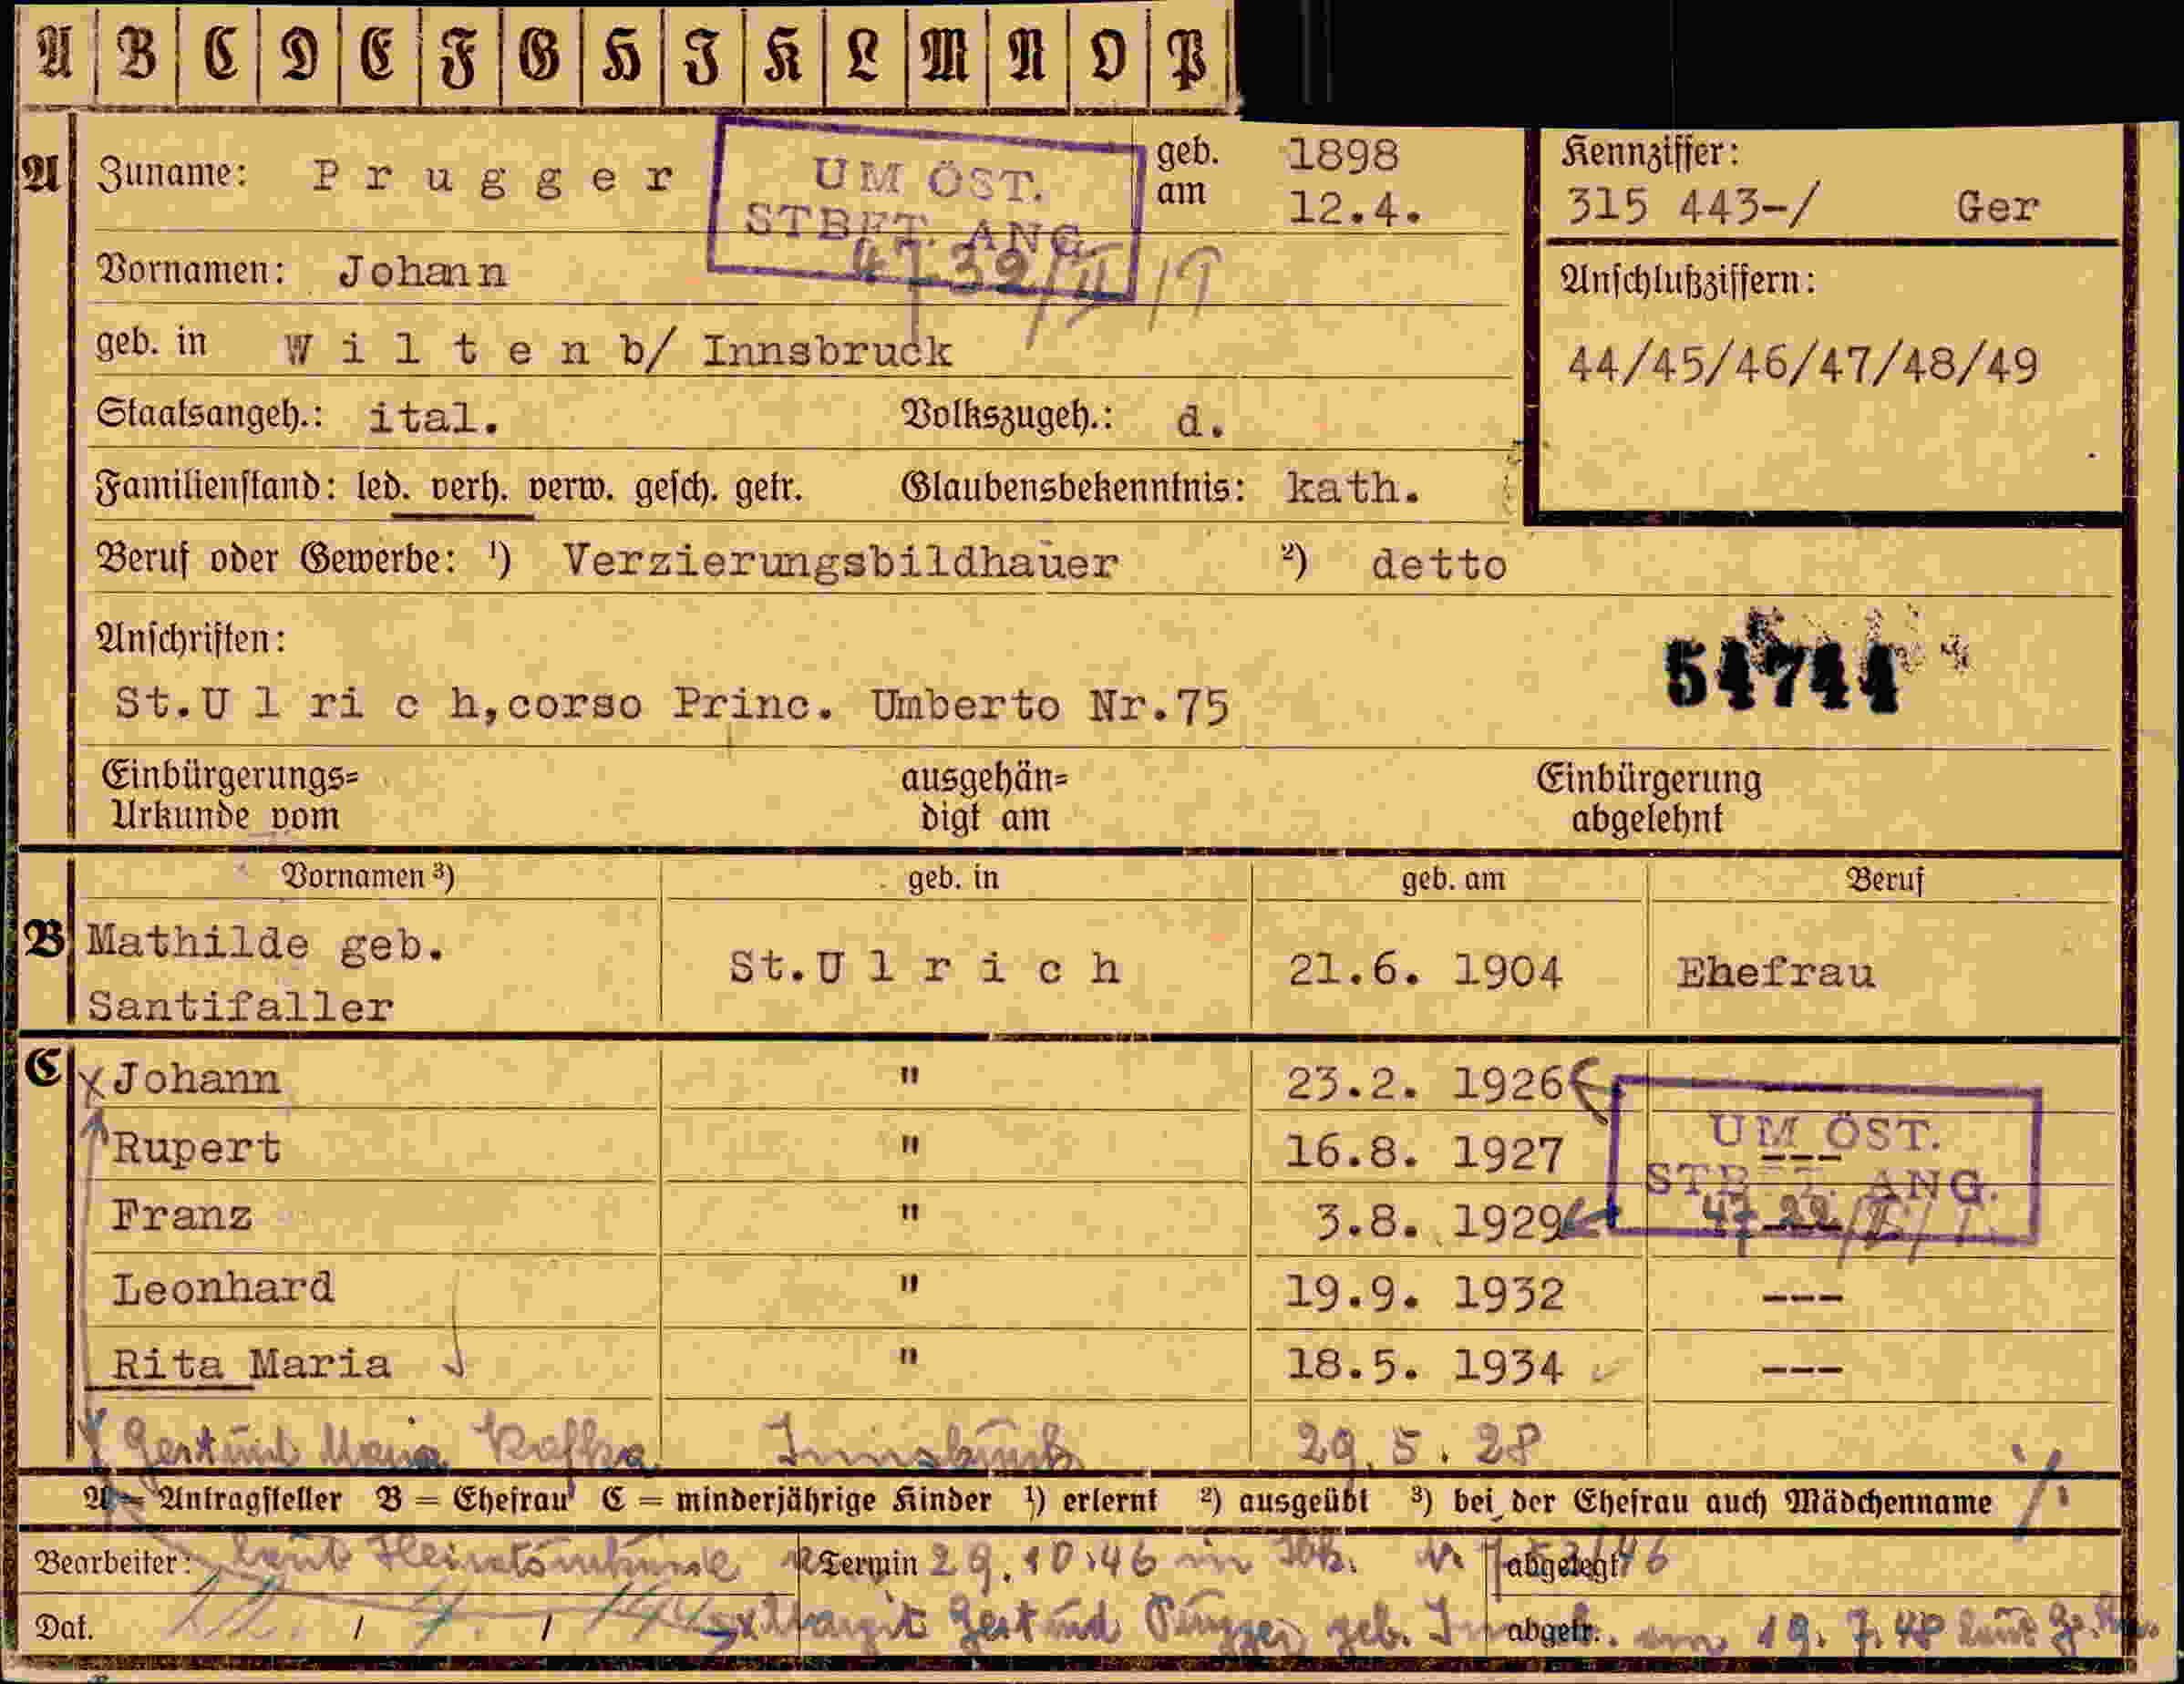 A B C D E F G H I K L M N O P
A Zuname: Prugger
UM ÖST.
STBET. ANG.
geb. am 1898
12.4.
Kennziffer:
315 443-/ Ger
Vornamen: Johann
Anschlußziffern:
44/45/46/47/48/49
geb. in Wilten b/ Innsbruck
Staatsangeh.: ital. Volkszugeh.: d.
Familienstand: led. verh. verw. gesch. getr. Glaubensbekenntnis: kath.
Beruf oder Gewerbe: ¹) Verzierungsbildhauer ²) detto
Anschriften:
54744
St.Ulrich, corso Princ. Umberto Nr.75
Einbürgerungs= ausgehän= Einbürgerung
Urkunde vom digt am abgelehnt
Vornamen ³) geb. in geb. am Beruf
B Mathilde geb.
Santifaller St.Ulrich 21.6. 1904 Ehefrau
C x Johann " 23.2. 1926
Rupert " 16.8. 1927 ---
UM ÖST.
STBET. ANG.
Franz " 3.8. 1929 ---
Leonhard " 19.9. 1932 ---
Rita Maria " 18.5. 1934 ---
Gertrud Maria Kafka Innsbruck 29.5.28
A = Antragsteller B = Ehefrau C = minderjährige Kinder ¹) erlernt ²) ausgeübt ³) bei der Ehefrau auch Mädchenname
Bearbeiter: laut Termin 29.10.46 in Ibk. abgelegt
Dat. / / Margit Gertrud Prugger geb. abgetr. am 19.7.48 laut